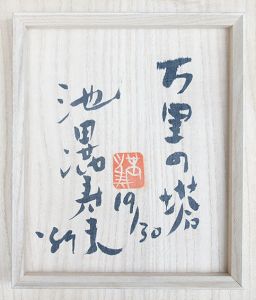 万里の塔
19/30
池田満寿夫